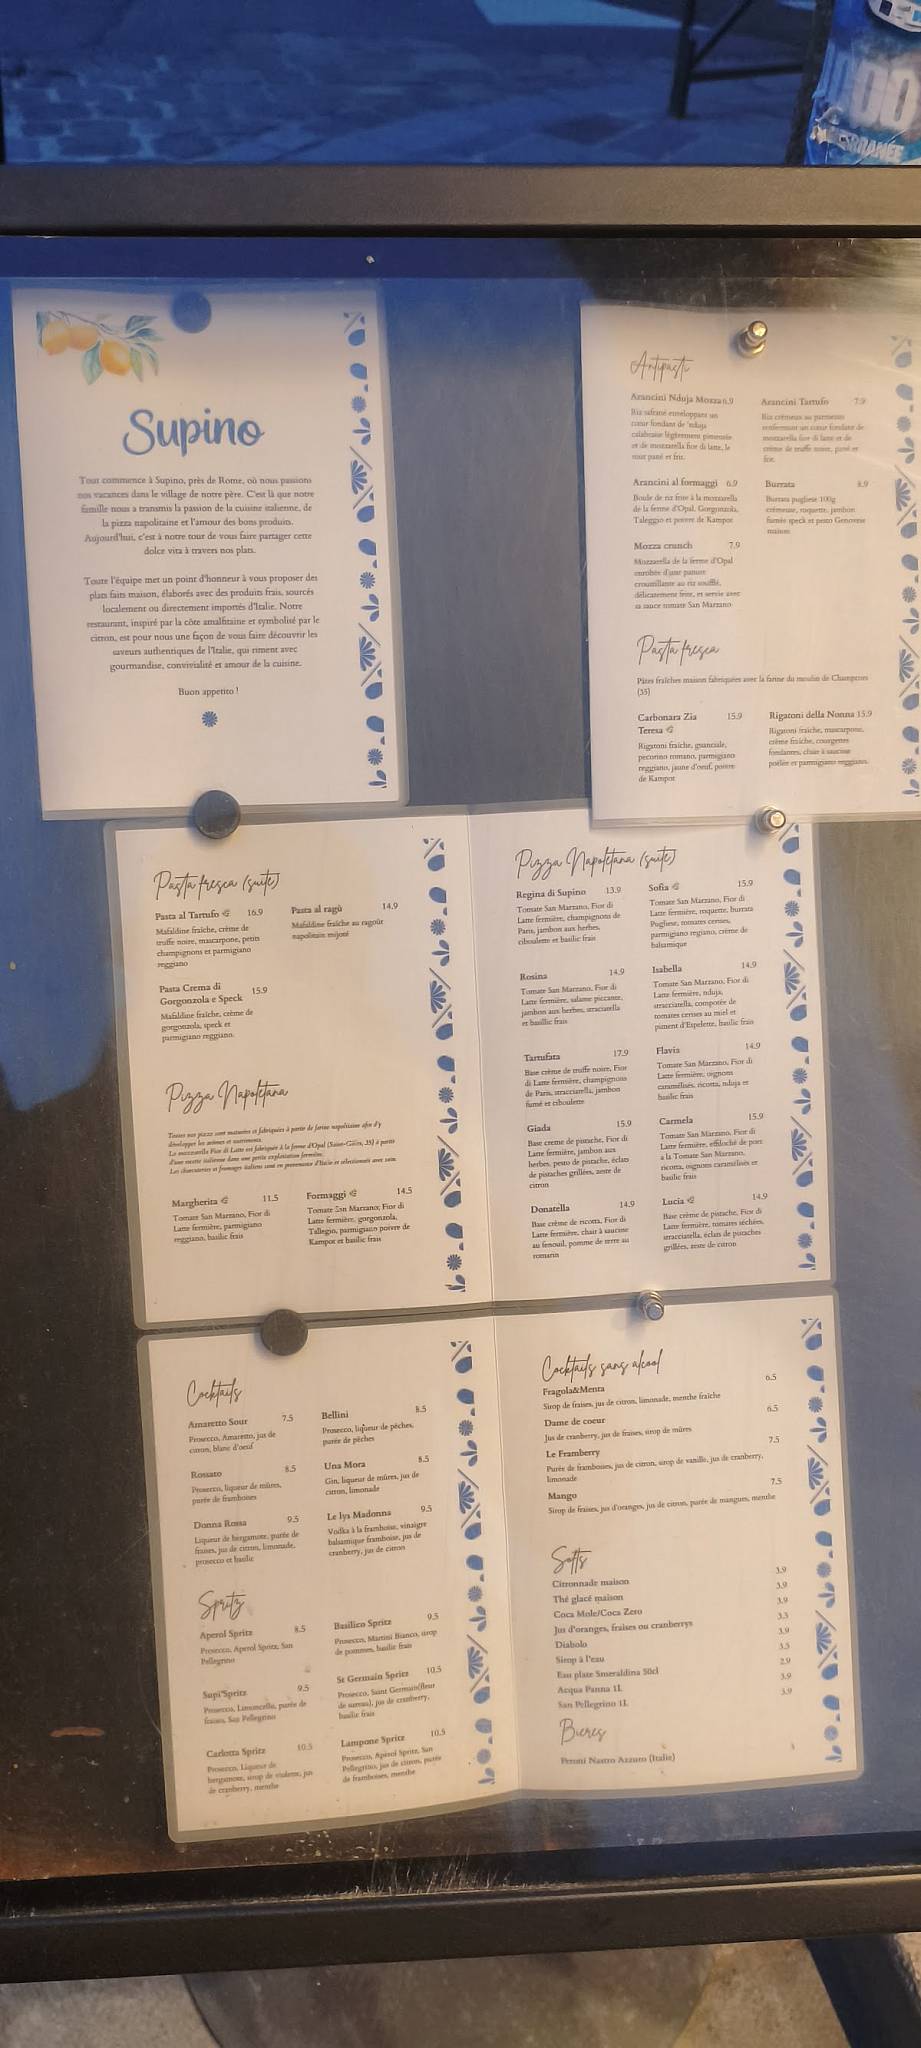 Supino
Tout commence à Supino, près de Rome, où nous passions
nos vacances dans le village de notre père. C'est là que notre
famille nous a transmis la passion de la cuisine italienne, de
la pizza napolitaine et l'amour des bons produits.
Aujourd'hui, c'est à notre tour de vous faire partager cette
dolce vita à travers nos plats.
Toute l'équipe met un point d'honneur à vous proposer des
plats faits maison, élaborés avec des produits frais, sourcés
localement ou directement importés d'Italie. Notre
restaurant, inspiré par la côte amalfitaine et symbolisé par le
citron, est pour nous une façon de vous faire découvrir les
saveurs authentiques de l'Italie, qui riment avec
gourmandise, convivialité et amour de la cuisine.
Buon appetito !
Antipasti
Arancini Nduja Mozza 6.9
Riz safrané enveloppant un
cœur fondant de 'nduja
calabraise légèrement pimentée
et de mozzarella fior di latte, le
tout pané et frit.
Arancini Tartufo 7.9
Riz crémeux au parmesan
renfermant un cœur fondant de
mozzarella fior di latte et de
crème de truffe noire, pané et
frit.
Arancini al formaggi 6.9
Boule de riz frite à la mozzarella
de la ferme d'Opal, Gorgonzola,
Taleggio et poivre de Kampot
Burrata 8.9
Burrata pugliese 100g
crémeuse, roquette, jambon
fumée speck et pesto Genovese
maison
Mozza crunch 7.9
Mozzarella de la ferme d'Opal
enrobée d'une panure
croustillante au riz soufflé,
délicatement frite, et servie avec
sa sauce tomate San Marzano
Pasta fresca
Pâtes fraîches maison fabriquées avec la farine du moulin de Champcors
(35)
Carbonara Zia 15.9
Teresa
Rigatoni fraîche, guanciale,
pecorino romano, parmigiano
reggiano, jaune d'oeuf, poivre
de Kampot
Rigatoni della Nonna 15.9
Rigatoni fraîche, mascarpone,
crème fraîche, courgettes
fondantes, chair à saucisse
poêlée et parmigiano reggiano.
Pasta fresca (suite)
Pasta al Tartufo 16.9
Mafaldine fraîche, crème de
truffe noire, mascarpone, petits
champignons et parmigiano
reggiano
Pasta al ragù 14.9
Mafaldine fraîche au ragoût
napolitain mijoté
Pasta Crema di
Gorgonzola e Speck 15.9
Mafaldine fraîche, crème de
gorgonzola, speck et
parmigiano reggiano.
Pizza Napoletana
Toutes nos pizzas sont maturées et fabriquées à partir de farine napolitaine afin d'y
développer les arômes et nutriments.
La mozzarella Fior di Latte est fabriquée à la ferme d'Opal (Saint-Gilles, 35) à partir
d'une recette italienne dans une petite exploitation fermière.
Les charcuteries et fromages italiens sont en provenance d'Italie et sélectionnés avec soin.
Margherita 11.5
Tomate San Marzano, Fior di
Latte fermière, parmigiano
reggiano, basilic frais
Formaggi 14.5
Tomate San Marzano, Fior di
Latte fermière, gorgonzola,
Tallegio, parmigiano poivre de
Kampot et basilic frais
Pizza Napoletana (suite)
Regina di Supino 13.9
Tomate San Marzano, Fior di
Latte fermière, champignons de
Paris, jambon aux herbes,
ciboulette et basilic frais
Sofia 15.9
Tomate San Marzano, Fior di
Latte fermière, roquette, burrata
Pugliese, tomates cerises,
parmigiano regiano, crème de
balsamique
Rosina 14.9
Tomate San Marzano, Fior di
Latte fermière, salame piccante,
jambon aux herbes, straciatella
et basillic frais
Isabella 14.9
Tomate San Marzano, Fior di
Latte fermière, nduja,
stracciatella, compotée de
tomates cerises au miel et
piment d'Espelette, basilic frais
Tartufata 17.9
Base crème de truffe noire, Fior
di Latte fermière, champignons
de Paris, stracciatella, jambon
fumé et ciboulette
Flavia 14.9
Tomate San Marzano, Fior di
Latte fermière, oignons
caramélisés, ricotta, nduja et
basilic frais
Giada 15.9
Base creme de pistache, Fior di
Latte fermière, jambon aux
herbes, pesto de pistache, éclats
de pistaches grillées, zeste de
citron
Carmela 15.9
Tomate San Marzano, Fior di
Latte fermière, effiloché de porc
a la Tomate San Marzano,
ricotta, oignons caramélisés et
basilic frais
Donatella 14.9
Base crème de ricotta, Fior di
Latte fermière, chair à saucisse
au fenouil, pomme de terre au
romarin
Lucia 14.9
Base crème de pistache, Fior di
Latte fermière, tomates séchées,
stracciatella, éclats de pistaches
grillées, zeste de citron
Cocktails
Amaretto Sour 7.5
Prosecco, Amaretto, jus de
citron, blanc d'oeuf
Bellini 8.5
Prosecco, liqueur de pêches,
purée de pêches
Rossato 8.5
Prosecco, liqueur de mûres,
purée de framboises
Una Mora 8.5
Gin, liqueur de mûres, jus de
citron, limonade
Donna Rossa 9.5
Liqueur de bergamote, purée de
fraises, jus de citron, limonade,
prosecco et basilic
Le lys Madonna 9.5
Vodka à la framboise, vinaigre
balsamique framboise, jus de
cranberry, jus de citron
Spritz
Aperol Spritz 8.5
Prosecco, Aperol Spritz, San
Pellegrino
Basilico Spritz 9.5
Prosecco, Martini Bianco, sirop
de pommes, basilic frais
Supi'Spritz 9.5
Prosecco, Limoncello, purée de
fraises, San Pellegrino
St Germain Spritz 10.5
Prosecco, Saint Germain(fleur
de sureau), jus de cranberry,
basilic frais
Carlotta Spritz 10.5
Prosecco, Liqueur de
bergamote, sirop de violette, jus
de cranberry, menthe
Lampone Spritz 10.5
Prosecco, Apérol Spritz, San
Pellegrino, jus de citron, purée
de framboises, menthe
Cocktails sans alcool
Fragola&Menta 6.5
Sirop de fraises, jus de citron, limonade, menthe fraîche
Dame de coeur 6.5
Jus de cranberry, jus de fraises, sirop de mûres
Le Framberry 7.5
Purée de framboises, jus de citron, sirop de vanille, jus de cranberry,
limonade
Mango 7.5
Sirop de fraises, jus d'oranges, jus de citron, purée de mangues, menthe
Softs
Citronnade maison 3.9
Thé glacé maison 3.9
Coca Mole/Coca Zero 3.9
Jus d'oranges, fraises ou cranberrys 3.5
Diabolo 3.9
Sirop à l'eau 3.5
Eau plate Smeraldina 50cl 2.9
Acqua Panna 1L 3.9
San Pellegrino 1L 3.9
Bieres
Peroni Nastro Azzuro (Italie)